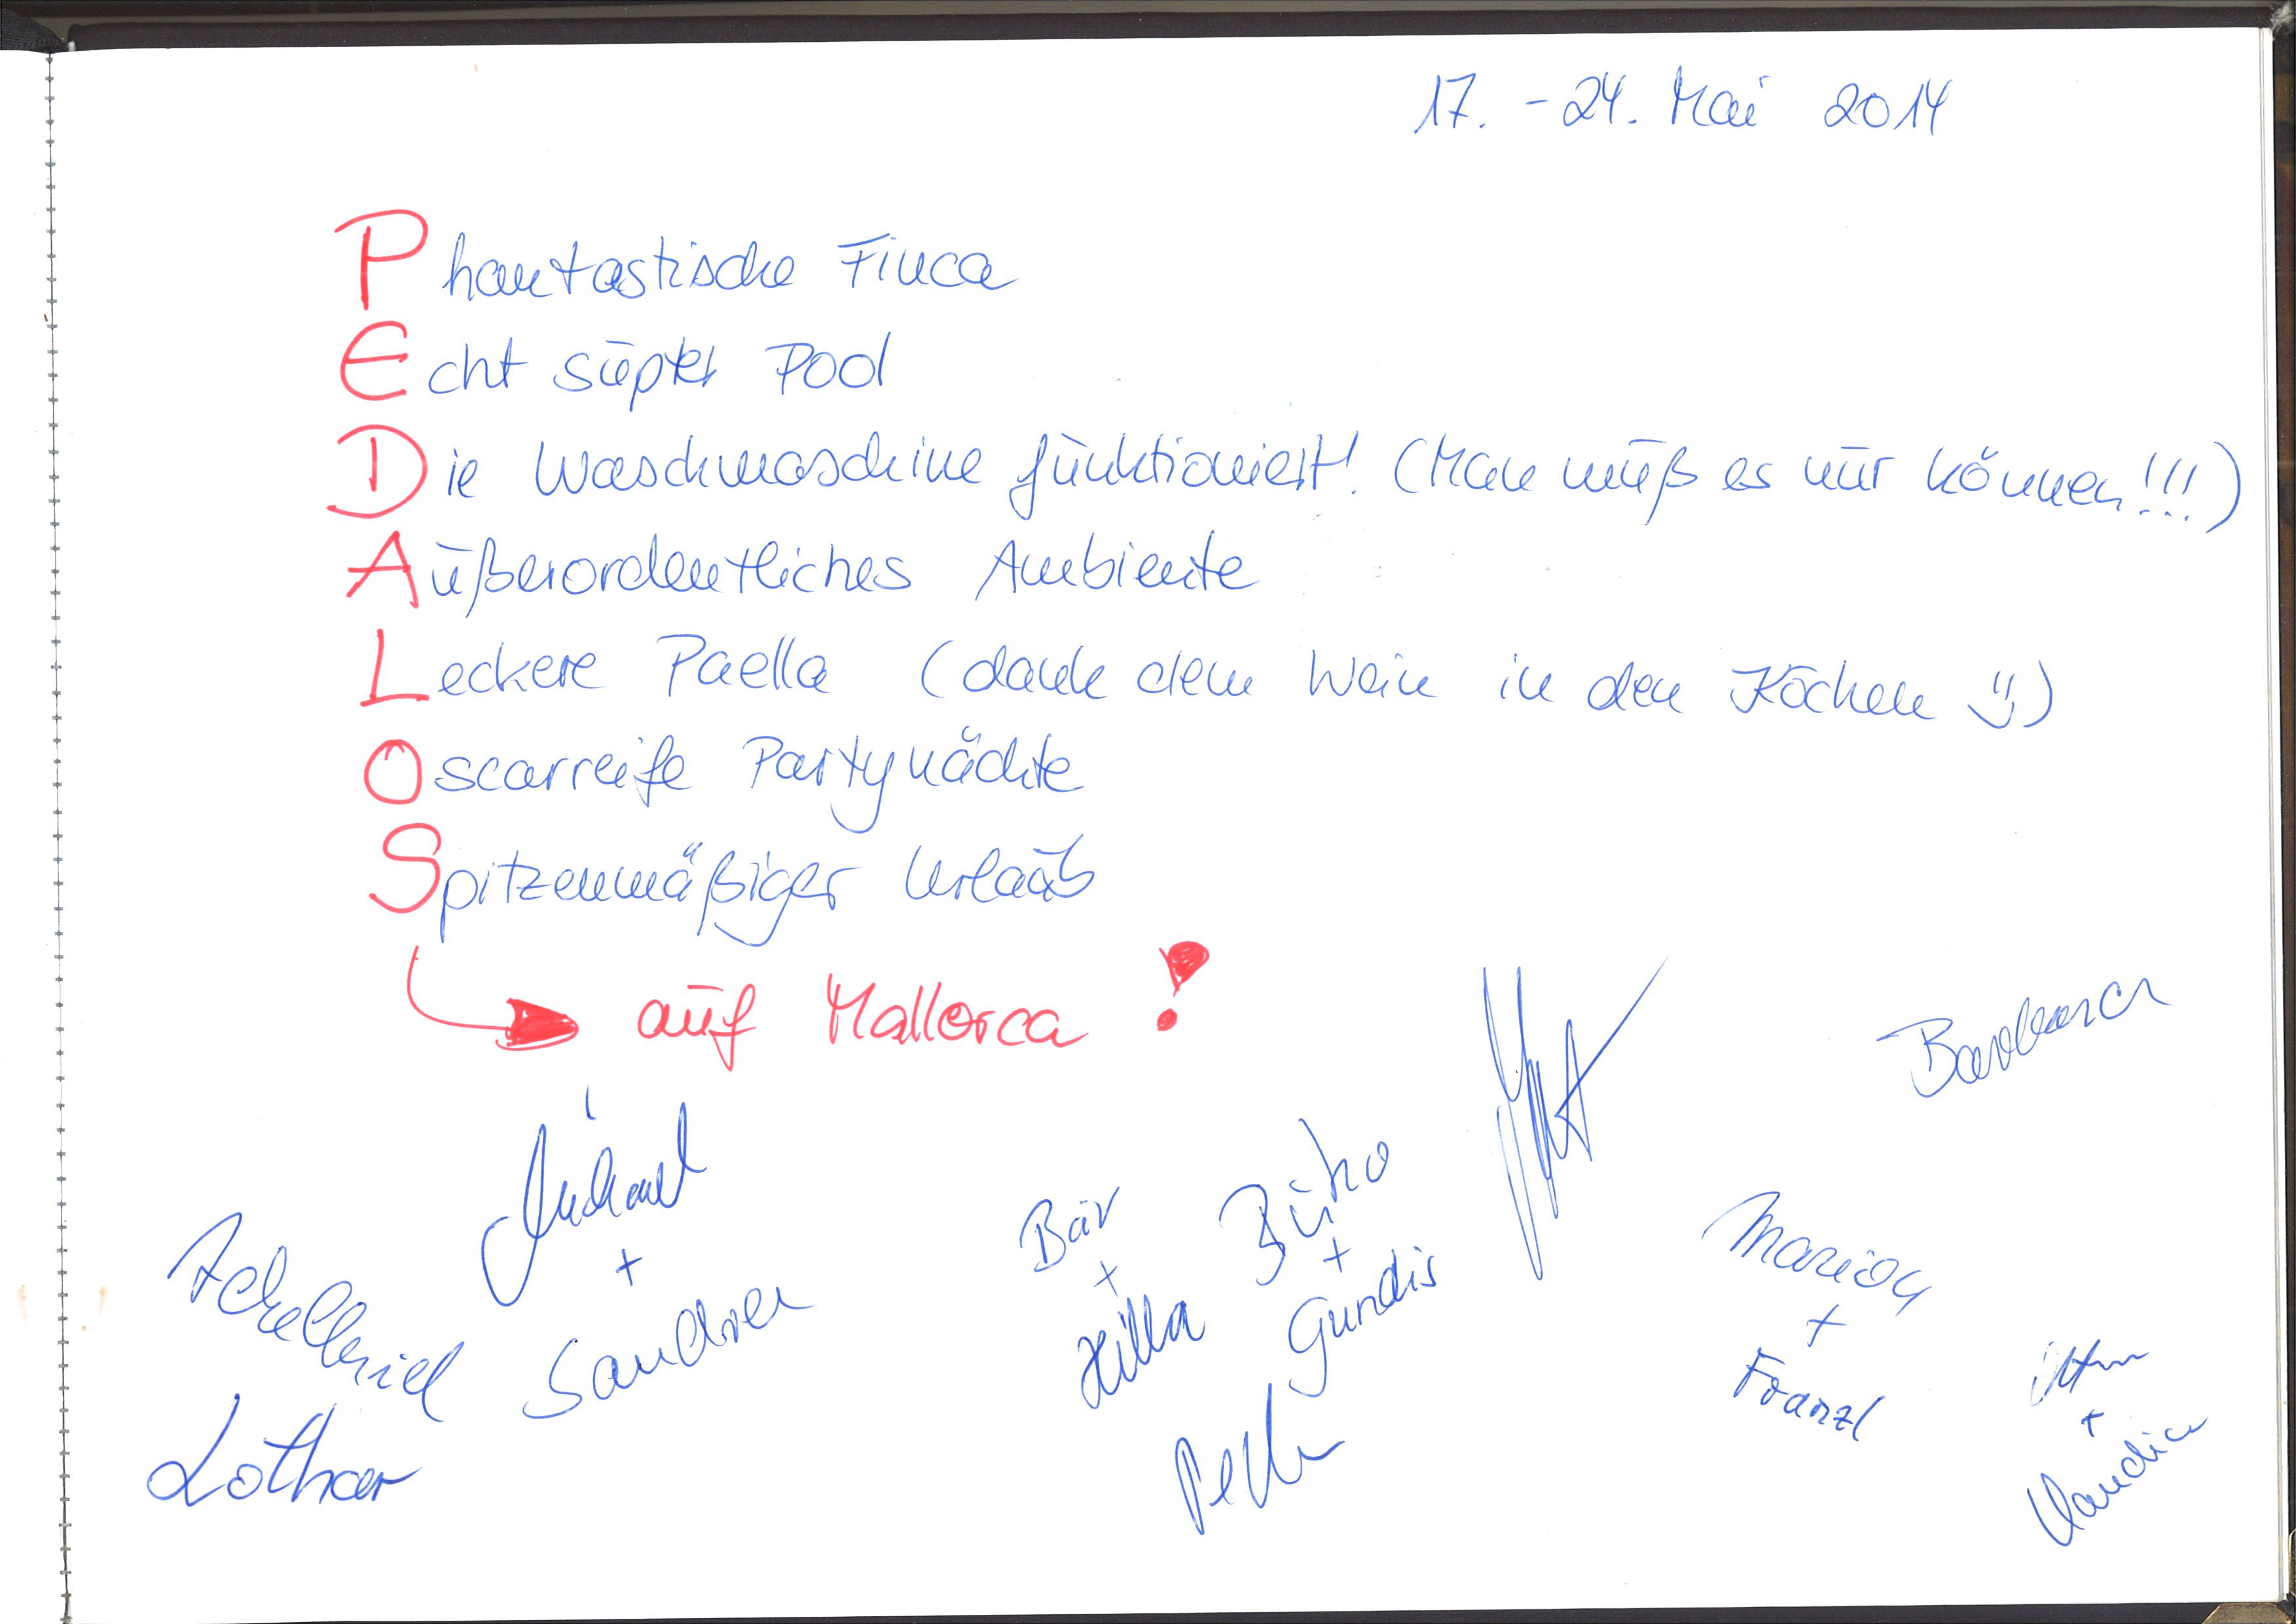 17. - 24. Mai 2014
Phantastische Finca
Echt super Pool
Die Waschmaschine funktioniert! (Man muß es nur können!!!)
Außerordentliches Ambiente
Leckere Paella (dank dem Wein in den Köchen
Oscarreife Partynächte
Spitzenmäßiger Urlaub
auf Mallorca !
Barbara
Michael
+
Sandra
Bär
+
Hilla
+
Gundis
Marion
+
Franzl
+
Claudia
Lothar